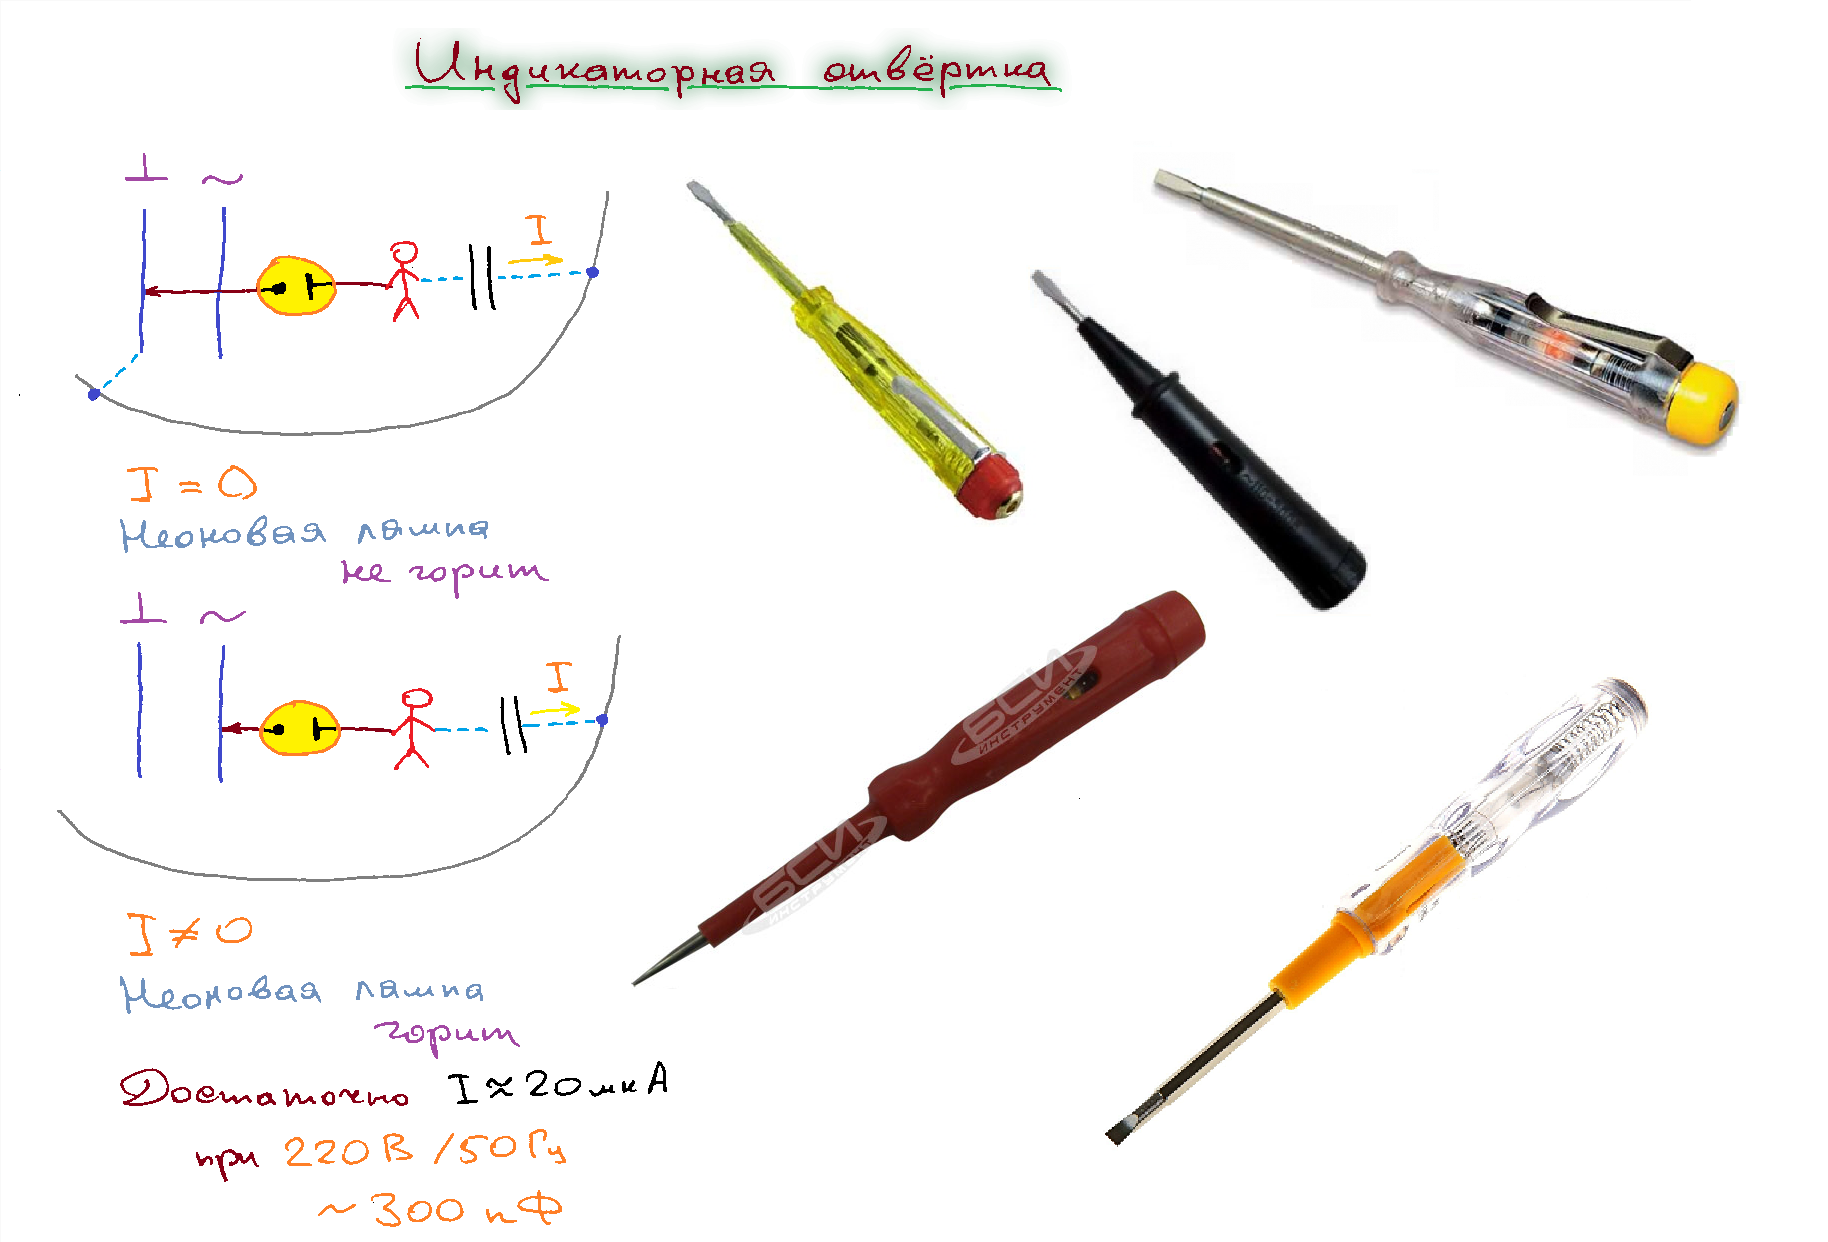 Индикаторная отвёртка
⊥ ~
I
I = 0
Неоновая лампа
не горит
⊥ ~
I
I ≠ 0
Неоновая лампа
горит
Достаточно I ≈ 20 мкА
при 220 В / 50 Гц
~ 300 пФ
БСИ
ИНСТРУМЕНТ
БСИ
ИНСТРУМЕНТ